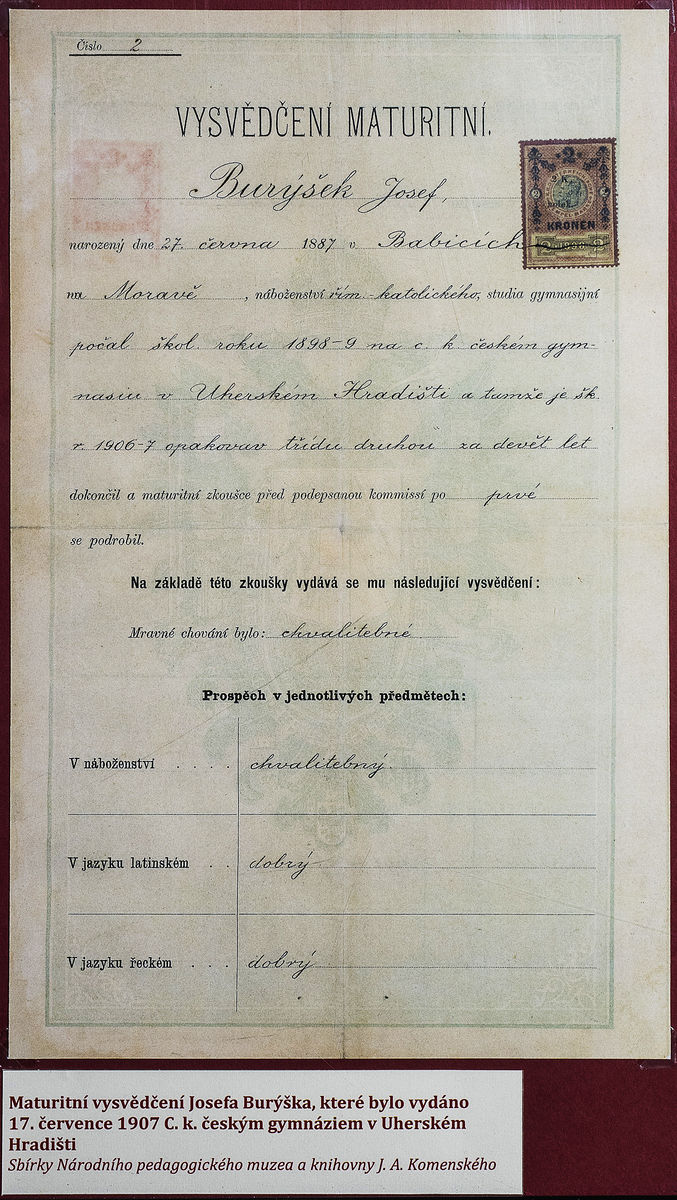 Číslo 2
VYSVĚDČENÍ MATURITNÍ.
Burýšek Josef,
2
KRONEN
narozený dne 27. června 1887 v Babicích
na Moravě, náboženství řím.-katolického, studia gymnasijní
počal škol. roku 1898-9 na c. k. českém gym-
nasiu v Uherském Hradišti a tamže je šk.
r. 1906-7 opakovav třídu druhou za devět let
dokončil a maturitní zkoušce před podepsanou kommissí po prvé
se podrobil.
Na základě této zkoušky vydává se mu následující vysvědčení:
Mravné chování bylo: chvalitebné.
Prospěch v jednotlivých předmětech:
V náboženství . . . . chvalitebný.
V jazyku latinském . . dobrý
V jazyku řeckém . . . dobrý
Maturitní vysvědčení Josefa Burýška, které bylo vydáno
17. července 1907 C. k. českým gymnáziem v Uherském
Hradišti
Sbírky Národního pedagogického muzea a knihovny J. A. Komenského